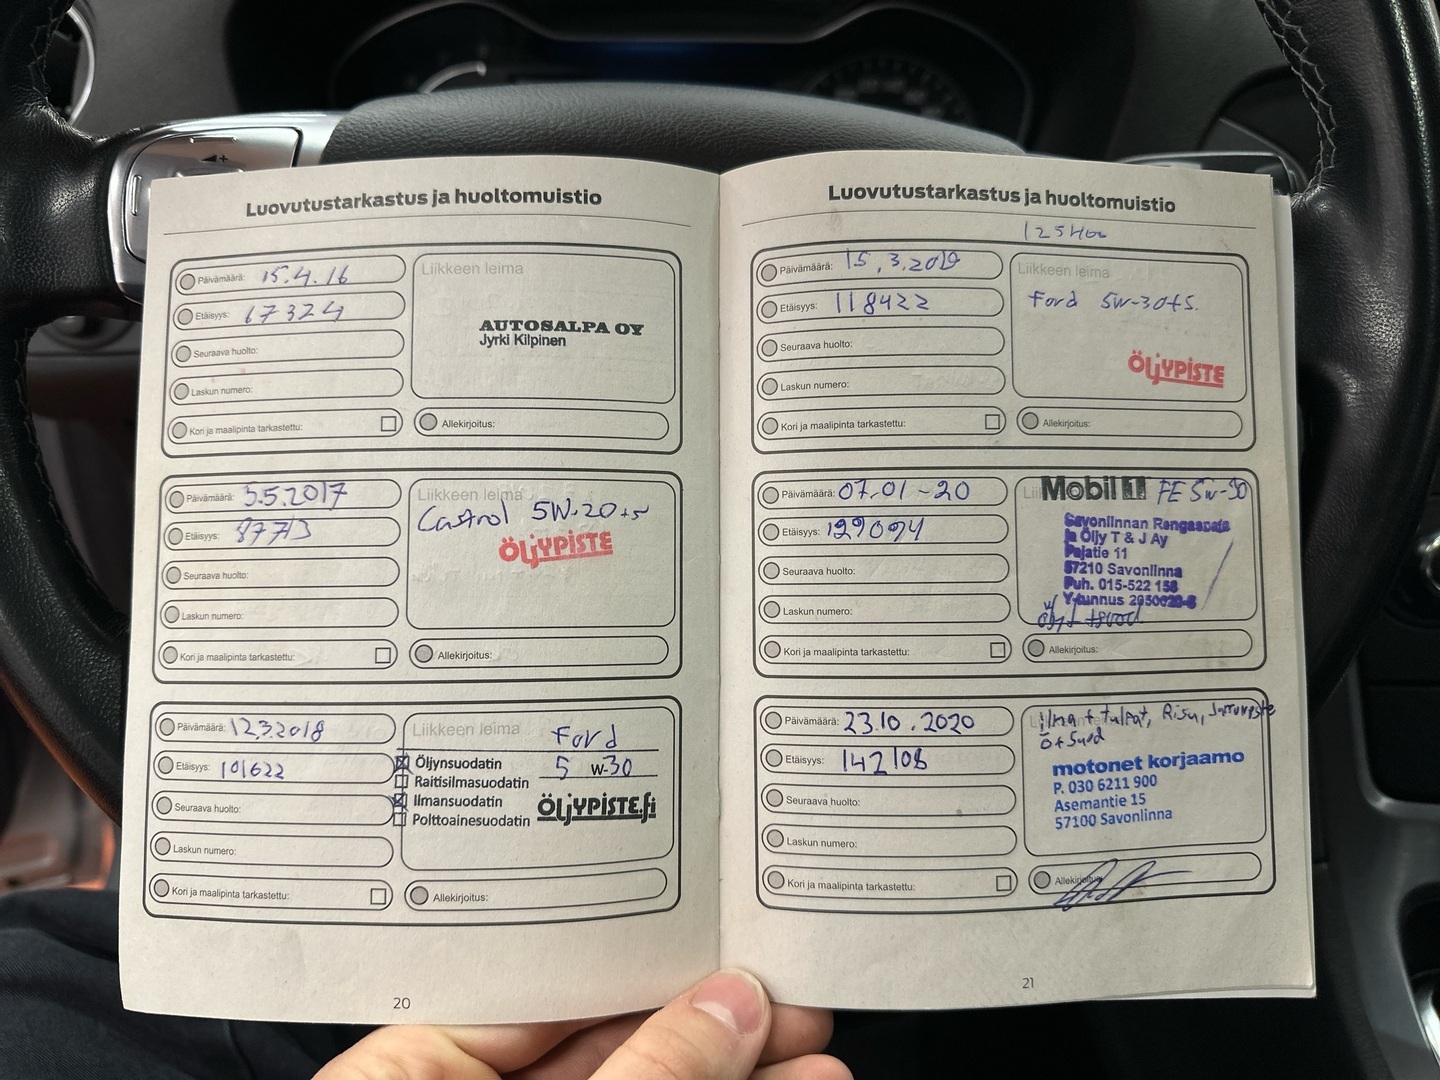 Luovutustarkastus ja huoltomuistio
Päivämäärä: 15.4.16
Etäisyys: 67324
Seuraava huolto:
Laskun numero:
Kori ja maalipinta tarkastettu:
Liikkeen leima
AUTOSALPA OY
Jyrki Kilpinen
Allekirjoitus:
Päivämäärä: 3.5.2017
Etäisyys: 87713
Seuraava huolto:
Laskun numero:
Kori ja maalipinta tarkastettu:
Liikkeen leima
Castrol 5W-20 +s
ÖLJYPISTE
Allekirjoitus:
Päivämäärä: 12.3.2018
Etäisyys: 101622
Seuraava huolto:
Laskun numero:
Kori ja maalipinta tarkastettu:
Liikkeen leima
Ford
Öljynsuodatin 5 W-30
Raitisilmasuodatin
Ilmansuodatin
Polttoainesuodatin
ÖLJYPISTE.fi
Allekirjoitus:
20
Luovutustarkastus ja huoltomuistio
Päivämäärä: 15.3.2019
Etäisyys: 118422
Seuraava huolto:
Laskun numero:
Kori ja maalipinta tarkastettu:
Liikkeen leima
Ford 5W-30+s.
ÖLJYPISTE
Allekirjoitus:
Päivämäärä: 07.01-20
Etäisyys: 129094
Seuraava huolto:
Laskun numero:
Kori ja maalipinta tarkastettu:
Mobil 1 FE 5W-30
Savonlinnan Rengaspata
ja Öljy T & J Ay
Pajatie 11
57210 Savonlinna
Puh. 015-522 158
Y-tunnus
Allekirjoitus:
Päivämäärä: 23.10.2020
Etäisyys: 142108
Seuraava huolto:
Laskun numero:
Kori ja maalipinta tarkastettu:
Ilma + tulpat,
Ö+Suod
motonet korjaamo
P. 030 6211 900
Asemantie 15
57100 Savonlinna
Allekirjoitus:
21